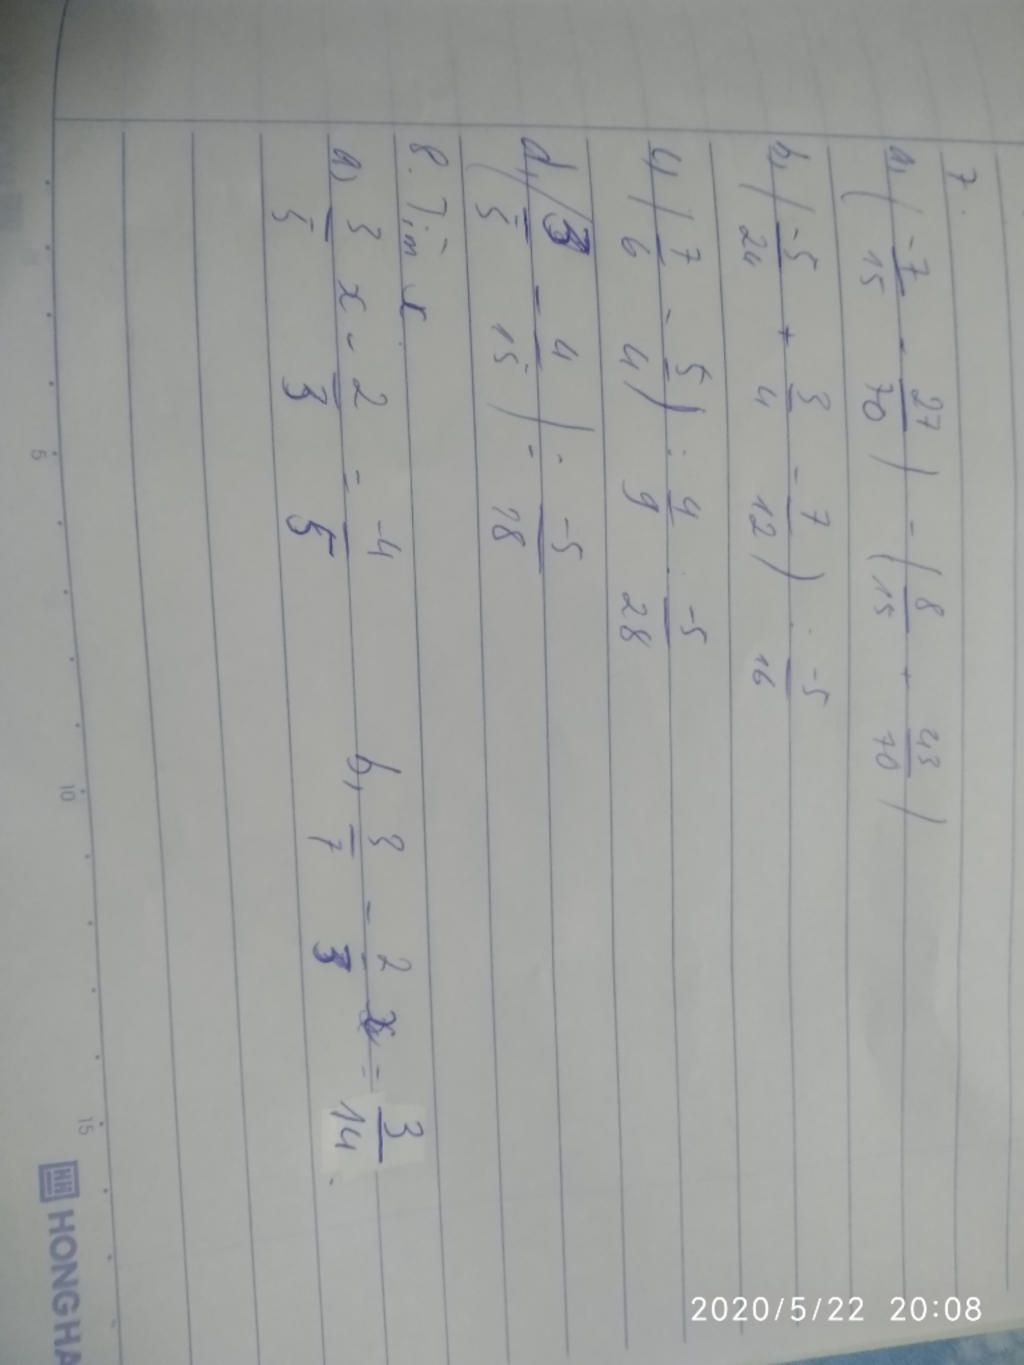 7.
a, (-7/15 - 27/70) - (8/15 + 43/70)
b, (-5/24 + 3/4 - 7/12) : -5/16
c, (7/6 - 5/4) : 4/9 . -5/28
d, (3/5 - 4/15) : -5/28
8. Tìm x.
a, 3/5 x - 2/3 = -4/5 b, 3/7 - 2/3 x = 3/14.
5 10 15
HONG HA
2020/5/22 20:08